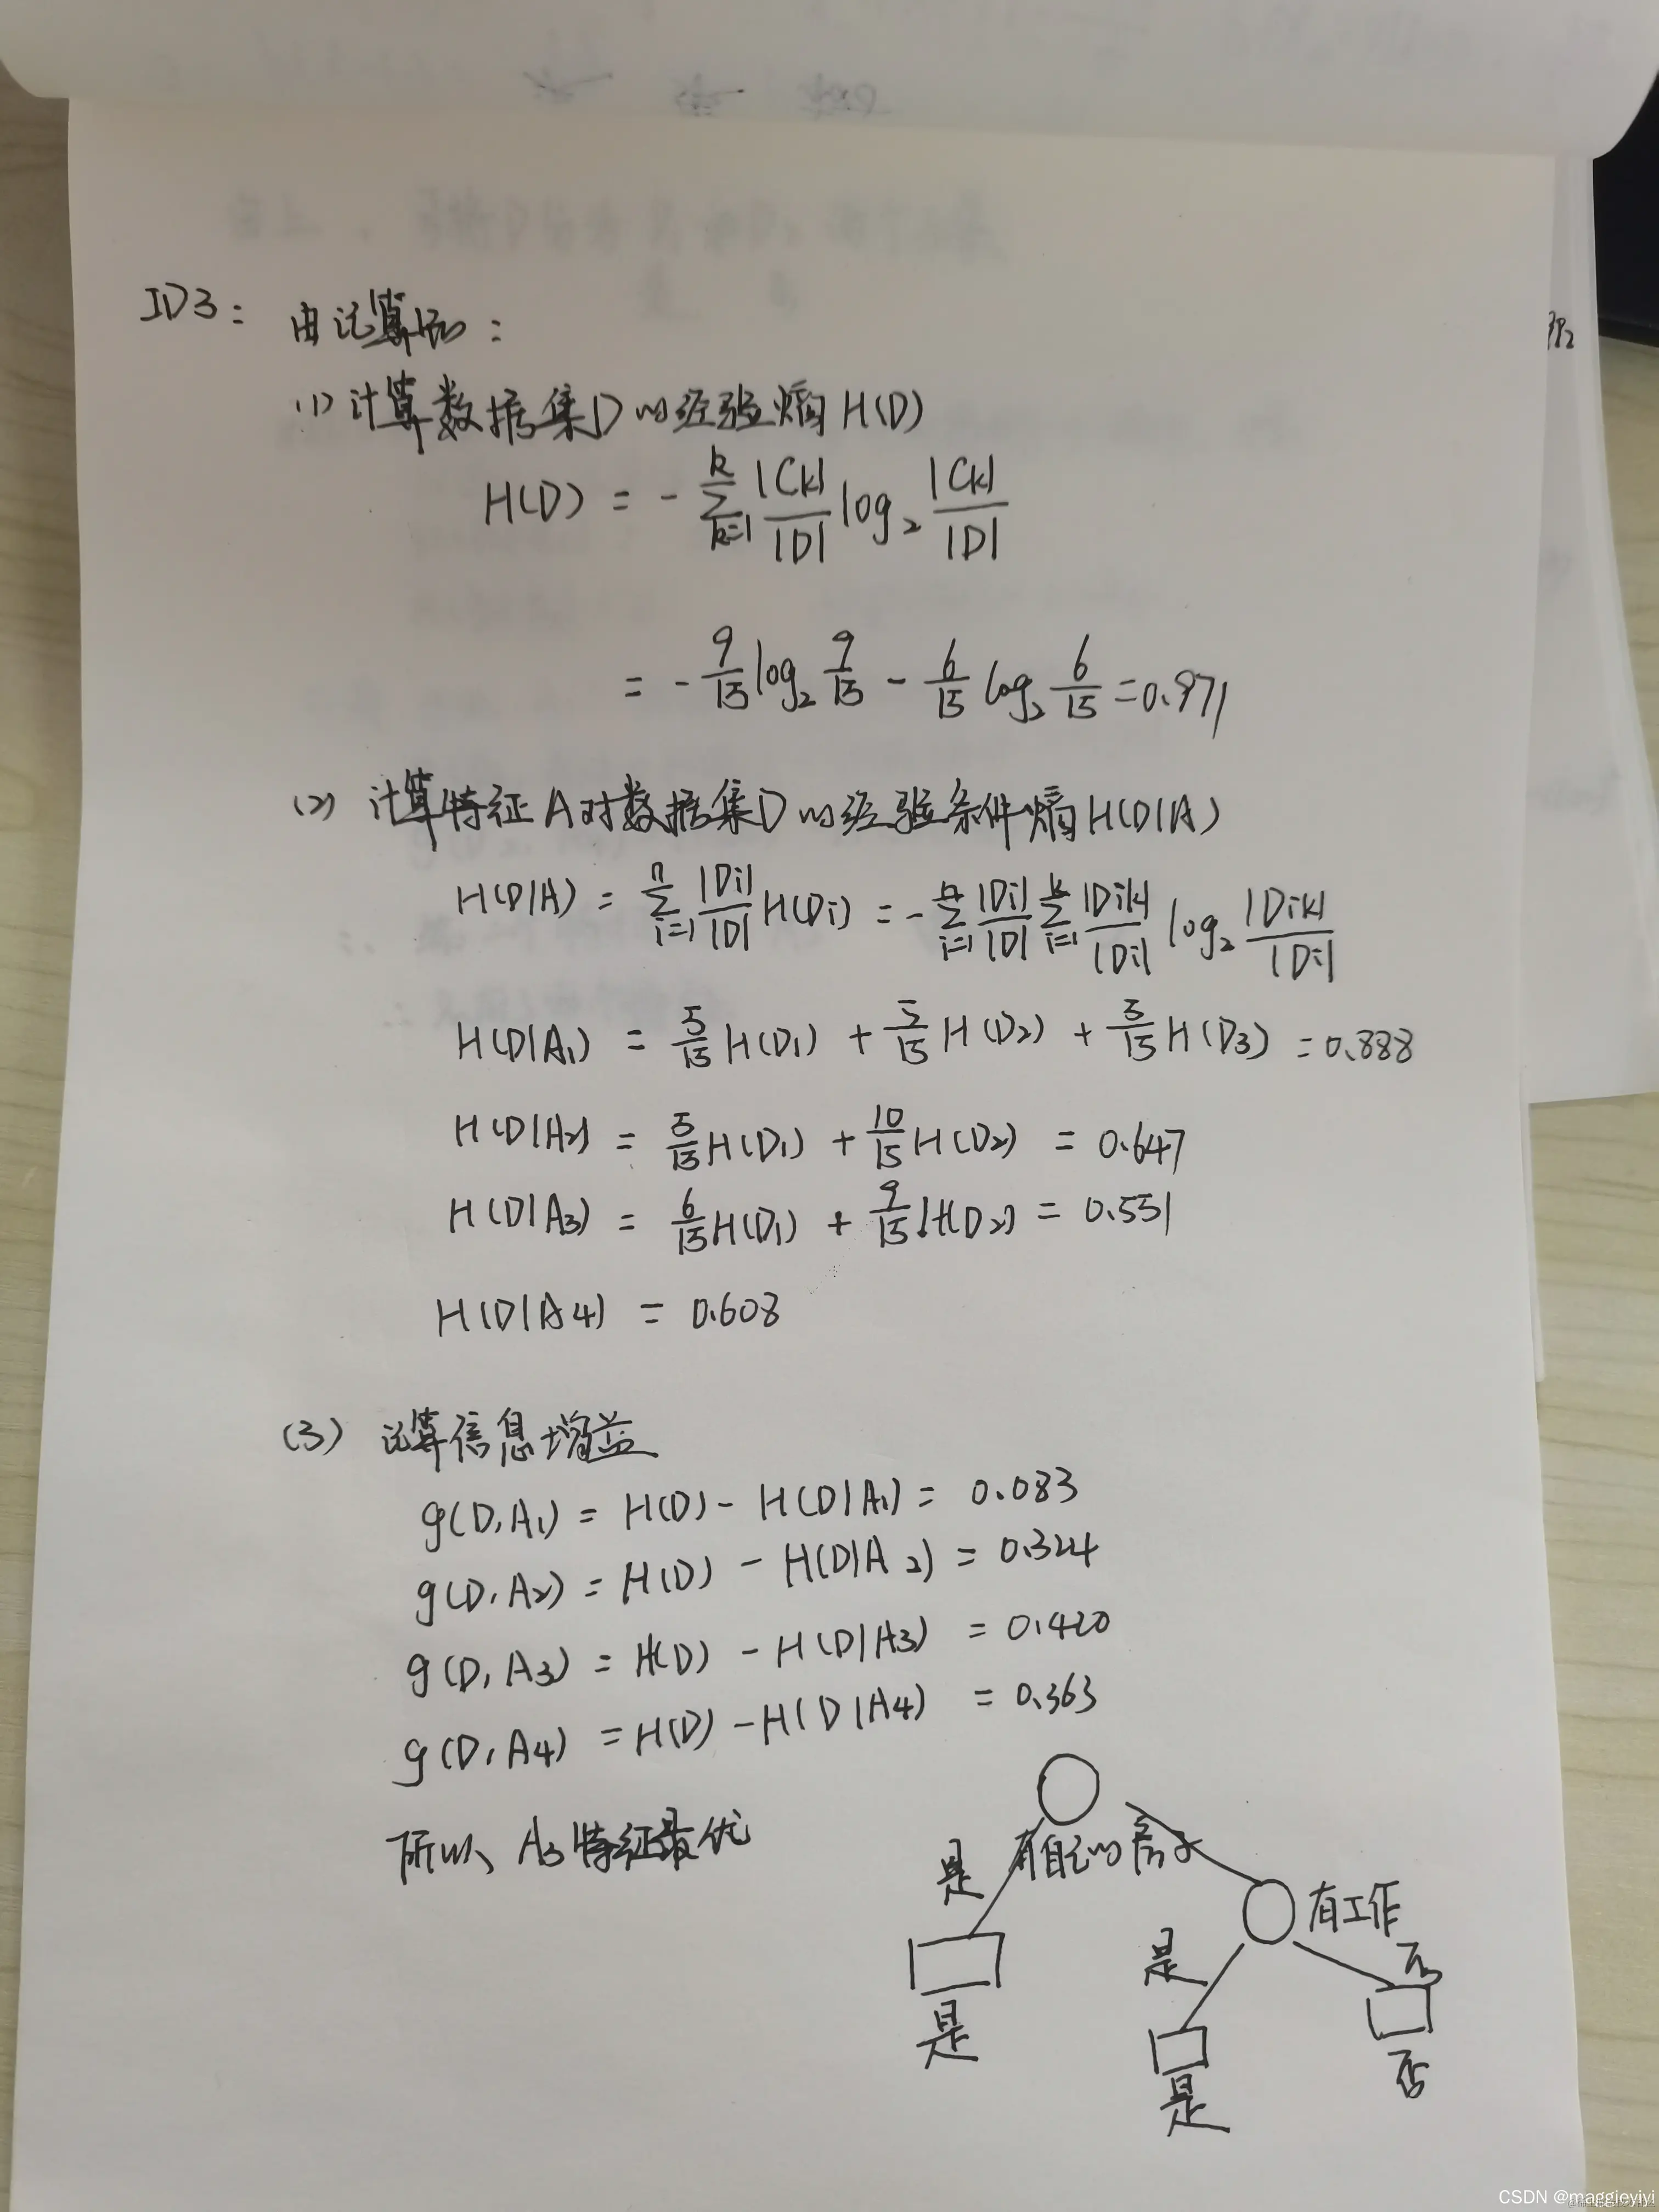 ID3: 由计算知:
(1) 计算数据集D的经验熵H(D)
H(D) = - ∑_{k=1}^{k} |Ck|/|D| log₂ |Ck|/|D|
= - 9/15 log₂ 9/15 - 6/15 log₂ 6/15 = 0.971
(2) 计算特征A对数据集D的经验条件熵H(D|A)
H(D|A) = ∑_{i=1}^{n} |Di|/|D| H(Di) = - ∑_{i=1}^{n} |Di|/|D| ∑_{i=1}^{k} |Dik|/|Di| log₂ |Dik|/|Di|
H(D|A₁) = 5/15 H(D₁) + 5/15 H(D₂) + 5/15 H(D₃) = 0.888
H(D|A₂) = 5/15 H(D₁) + 10/15 H(D₂) = 0.647
H(D|A₃) = 6/15 H(D₁) + 9/15 H(D₂) = 0.551
H(D|A4) = 0.608
(3) 计算信息增益
g(D,A₁) = H(D) - H(D|A₁) = 0.083
g(D,A₂) = H(D) - H(D|A₂) = 0.324
g(D,A₃) = H(D) - H(D|A₃) = 0.420
g(D,A4) = H(D) - H(D|A4) = 0.363
所以、A₃特征最优
是 有自己的房子
有工作
是 否
是
是 否
CSDN @maggieyiyi